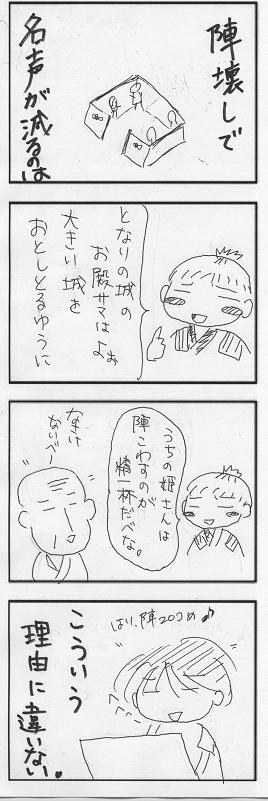 陣壊しで
名声が減るのは
となりの城の
お殿サマはよぉ
大きい城を
おとしとるゆうに
うちの姫さんは
陣こわすのが
精一杯だべな。
なさけ
ないべー
はい、陣20コめ♪
こういう
理由に違いない。